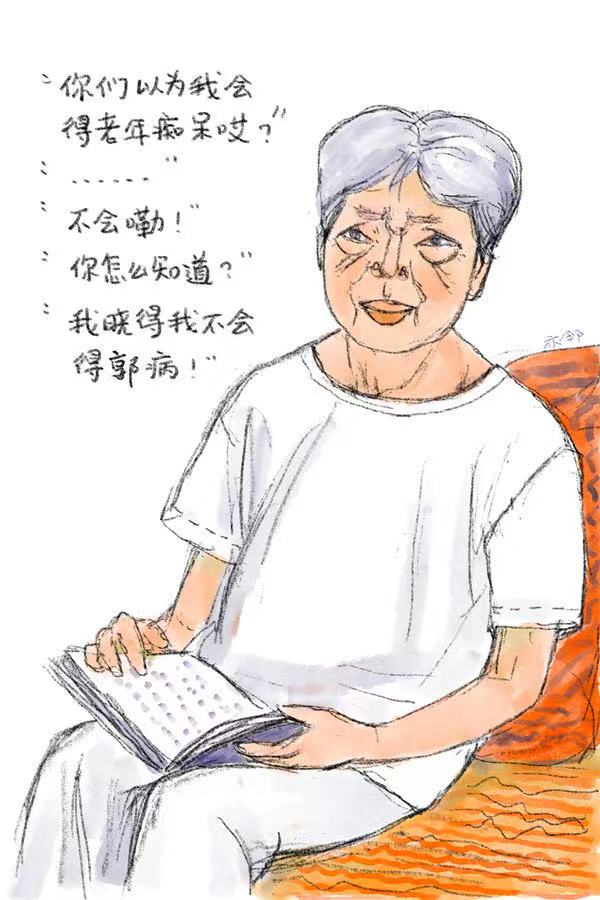 "你们以为我会
得老年痴呆哎?"
"......"
"不会嘞!"
"你怎么知道?"
"我晓得我不会
得郭病!"
亦邹